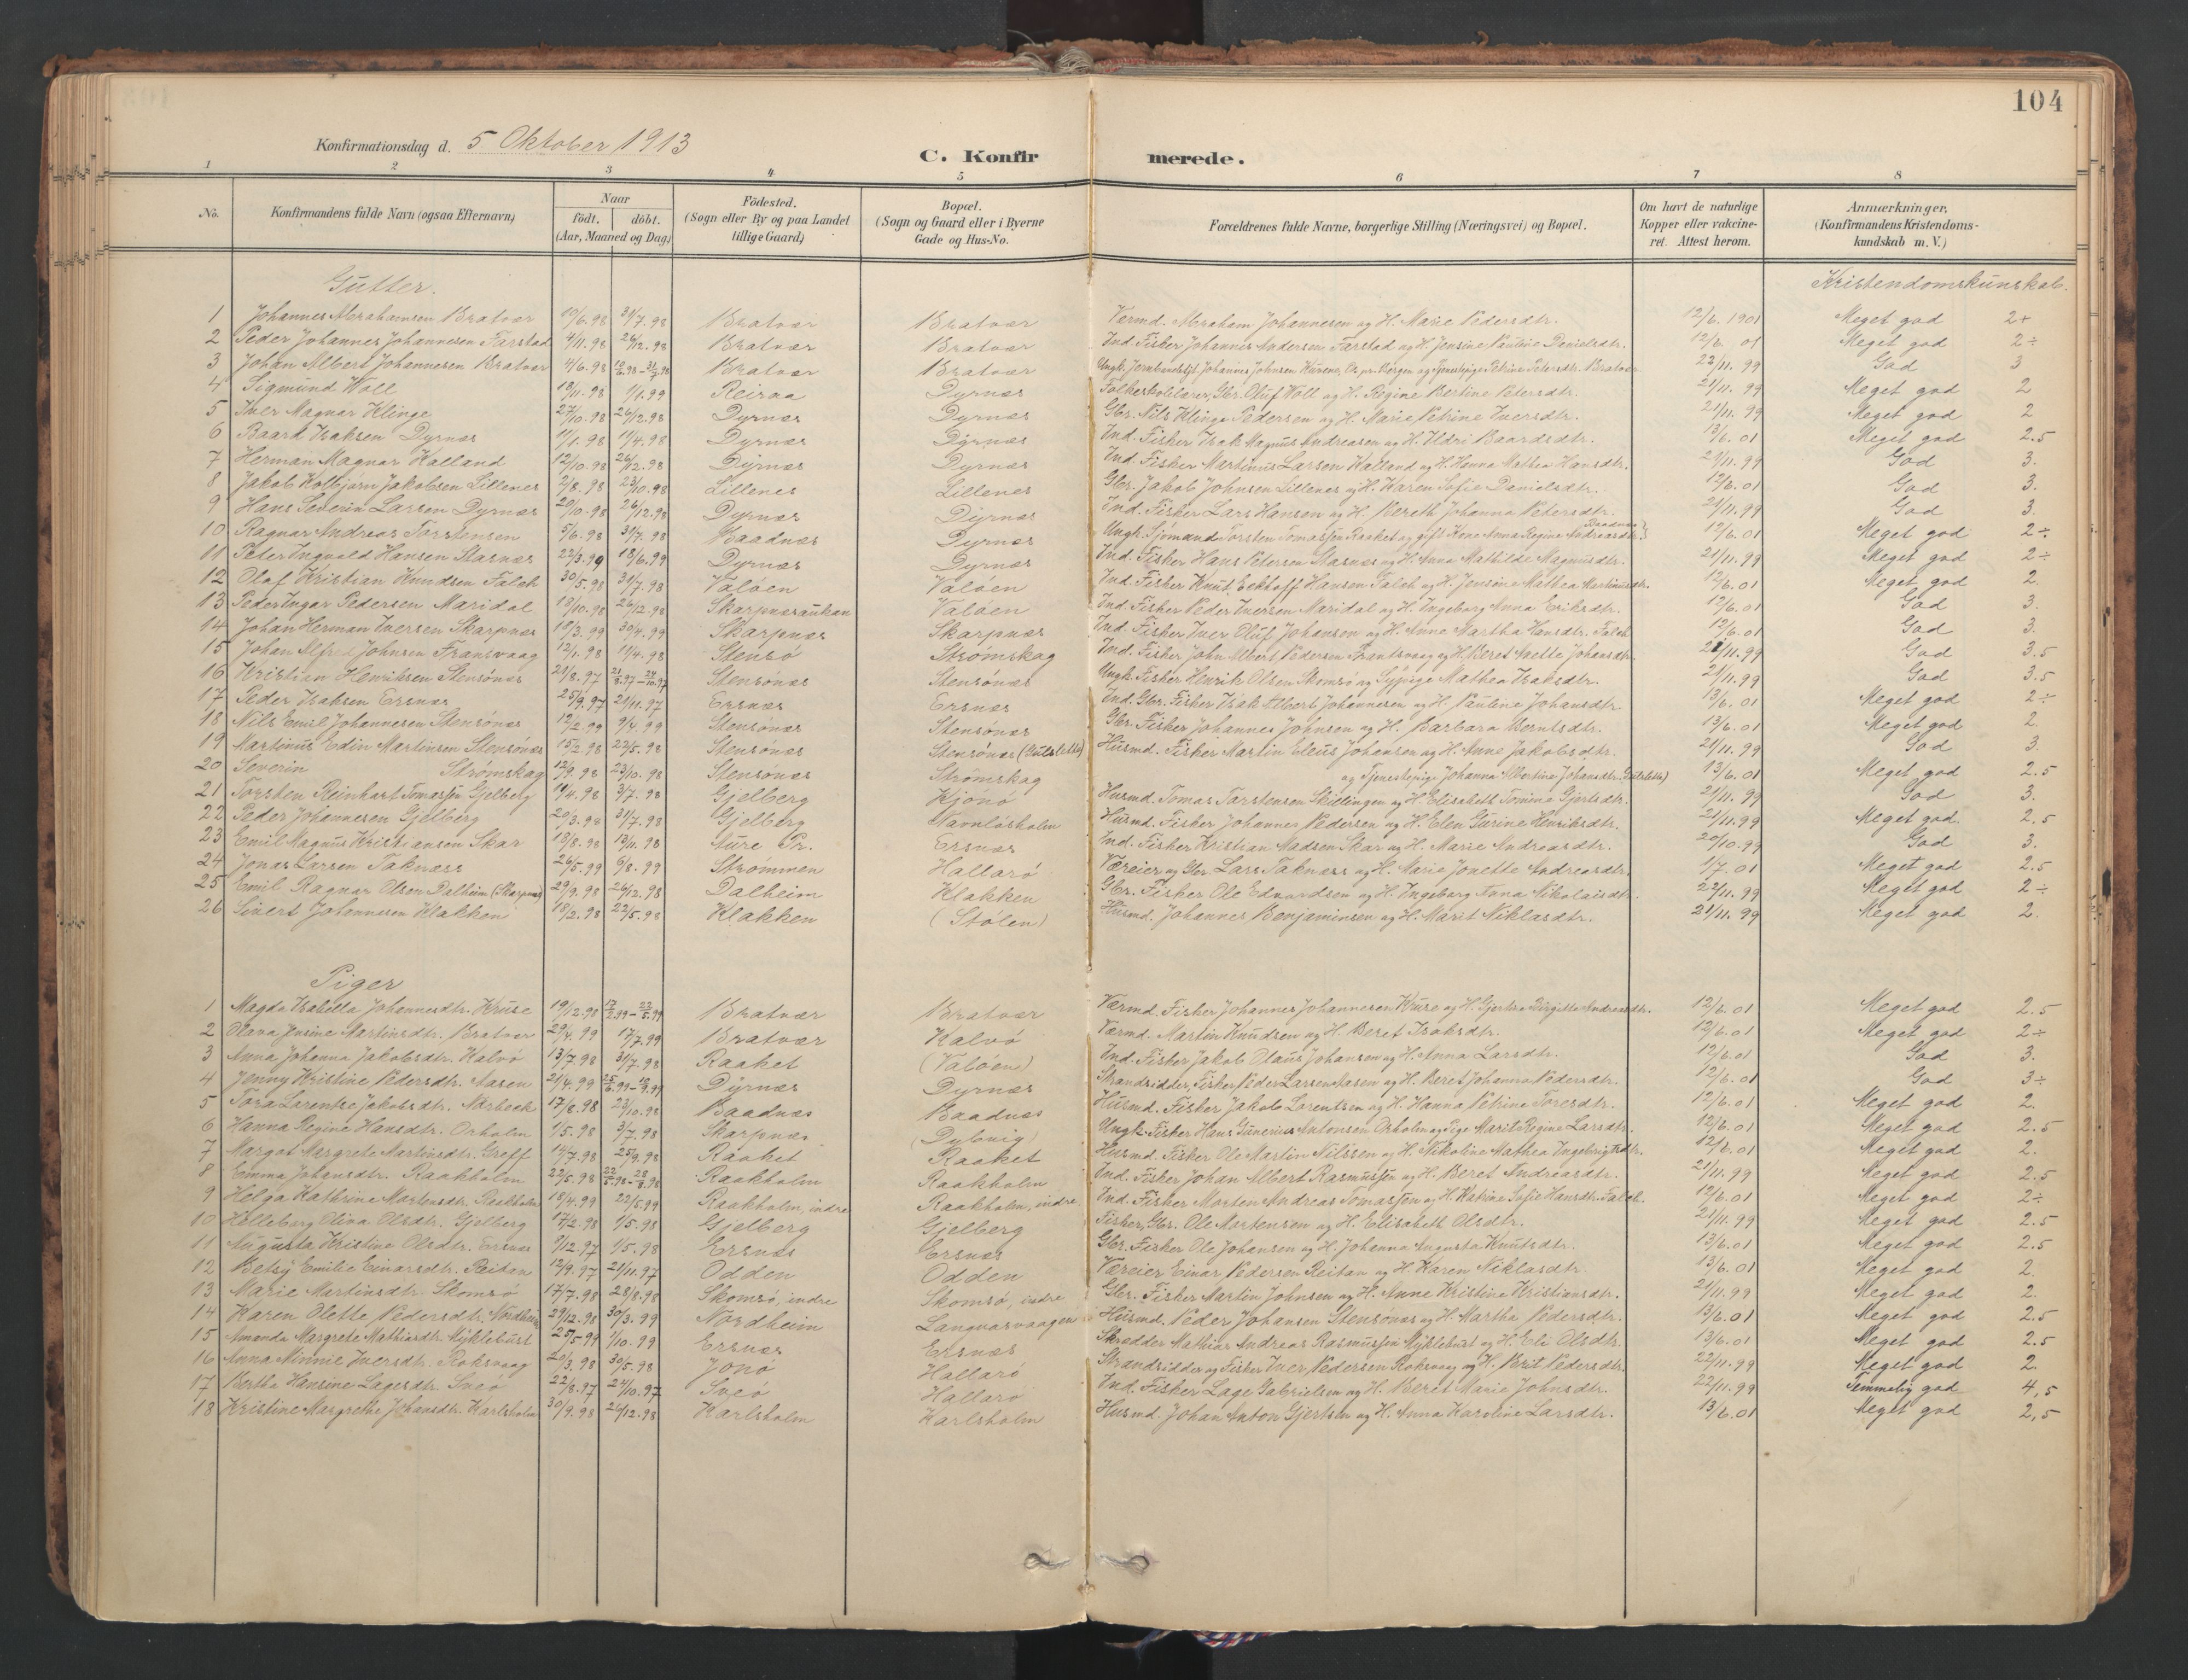 104
Konfirmationsdag d. 5 Oktober 1913
C. Konfirmerede.
1 2 3 4 5 6 7 8
No. Konfirmandens fulde Navn (ogsaa Efternavn) Naar födt. döbt. (Aar, Maaned og Dag) Födested. (Sogn eller By og paa Landet tillige Gaard) Bopæl. (Sogn og Gaard eller i Byerne Gade og Hus-No. Forældrenes fulde Navne, borgerlige Stilling (Næringsvei) og Bopæl. Om havt de naturlige Kopper eller vakcineret. Attest herom. Anmærkninger. (Konfirmandens Kristendomskundskab m. V.)
Gutter. Kristendomskunskab.
1 Johannes Abrahamsen Bratvær 10/6.98 31/7.98 Bratvær Bratvær Værmd. Abraham Johannesen og H. Marie Pedersdtr. 12/6.1901 Meget god 2+
2 Peder Johannes Johannesen Farstad 4/11.98 26/12.98 Bratvær Bratvær Ind. Fisker Johannes Andersen Farstad og H. Jensine Pauline Danielsdtr. 12/6 01 Meget god 2÷
3 Johan Albert Johannesen Bratvær 4/6.98 Bratvær Bratvær Ungk. Johannes Johnsen Petrine Petersdtr. Bratvær 22/11.99 God 3
4 Sigmund Woll 18/11.98 1/1.99 Reiraa Dyrnæs Folkeskolelærer, Gbr. Oluf Woll og H. Regine Bertine Petersdtr. 21/11.99 Meget god 2
5 Iver Magnar Klinge 27/10.98 26/12.98 Dyrnæs Dyrnæs Gbr. Nils Klinge Pedersen og H. Marie Petrine Iversdtr. 21/11.99 Meget god 2
6 Baard Isaksen Dyrnæs 11/1.98 11/4.98 Dyrnæs Dyrnæs Ind. Fisker Isak Magnus Andreasen og H. Ildri Baardsdtr. 13/6.01 Meget god 2.5
7 Herman Magnar Kalland 12/10.98 26/12.98 Dyrnæs Dyrnæs Ind. Fisker Martinus Larsen Kalland og H. Hanna Mathea Hansdtr. 21/11.99 God 3.
8 Jakob Kolbjørn Jakobsen Lillenes 2/8.98 23/10.98 Lillenes Lillenes Gbr. Jakob Johnsen Lillenes og H. Karen Sofie Danielsdtr. 12/6.01 God 3.
9 Hans Severin Larsen Dyrnæs 20/10.98 26/12.98 Dyrnæs Dyrnæs Ind. Fisker Lars Hansen og H. Bereth Johanna Petersdtr. 21/11.99 God 3.
10 Ragnar Andreas Torstensen 5/6.98 31/7.98 Baadnæs Dyrnæs Ungk. Sjömand Torsten Tomassen Raaket og gift Kone Anna Regine Andreasdtr. Baadnæs 12/6.01 Meget god 2÷
11 Peter Ingvald Hansen Stasnæs 22/3.99 18/6.99 Dyrnæs Dyrnæs Ind. Fisker Hans Petersen Stasnæs og H. Anna Mathilde Magnusdtr. 21/11.99 Meget god 2÷
12 Olaf Kristian Knudsen Falch 30/5.98 31/7.98 Valöen Valöen Ind. Fisker Knut Eckhoff Hansen Falch og H. Jensine Mathea Martinusdtr. 12/6.01 Meget god 2.
13 Peder Ingar Pedersen Maridal 18/10.98 26/12.98 Skarpnæsauken Valöen Ind. Fisker Peder Iversen Maridal og H. Ingeborg Anna Eriksdtr. 12/6.01 God 3.
14 Johan Herman Iversen Skarpnæs 18/3.99 30/4.99 Skarpnæs Skarpnæs Ind. Fisker Iver Oluf Johansen og H. Anne Martha Hansdtr. Falch 12/6.01 God 3.
15 Johan Alfred Johnsen Fransvaag 12/1.98 11/4.98 Stensö Strömskag Ind. Fisker John Albert Pedersen Frantsvaag og H. Beret Anette Johansdtr. 21/11.99 God 3.5
16 Kristian Henriksen Stensönæs 21/8.97 Stensönæs Stensönæs Ungk. Fisker Henrik Olsen Skomsö og Sypige Mathea Isaksdtr. 21/11.99 God 3.5
17 Peder Isaksen Ersnæs 25/9.97 21/11.97 Ersnæs Ersnæs Ind. Gbr. Fisker Isak Albert Johannesen og H. Pauline Johansdtr. 13/6.01 Meget god 2÷
18 Nils Emil Johannesen Stensönæs 12/2.99 9/4.99 Stensönæs Stensönæs Gbr. Fisker Johannes Johnsen og H. Barbara Berntsdtr. 13/6.01 Meget god 2.
19 Martinus Edin Martinsen Stensönæs 15/2.98 22/5.98 Stensönæs Stensönæs (Gulsletta) Husmd. Fisker Martin Eleus Johansen og H. Anne Jakobsdtr. 21/11.99 God 3.
20 Severin Strömskag 12/9.98 23/10.98 Stensönæs Strömskag og Tjenestepige Johanna Albertine Johansdtr. Gulsletta) 13/6.01 Meget god 2.5
21 Torsten Reinhart Tomassen Gjelberg 11/4.98 3/7.98 Gjelberg Kjönö Husmd. Tomas Tarstensen Skillingen og H. Elisabeth Tomine Gjertsdtr. 21/11.99 God 3.
22 Peder Johannesen Gjelberg 20/3.98 31/7.98 Gjelberg Navnlösholm Husmd. Fisker Johannes Pedersen og H. Elen Gurine Henriksdtr. 21/11.99 Meget god. 2.5
23 Emil Magnus Kristiansen Skar 18/8.98 13/11.98 Aure Pr. Ersnæs Ind. Fisker Kristian Madsen Skar og H. Marie Andreasdtr. 20/10.99 God 3.
24 Jonas Larsen Taknæss 26/5.99 6/8.99 Strömmen Hallarö Væreier og Gbr. Lars Taknæss og H. Marie Jonette Andreasdtr. 1/7.01 Meget god 2.5
25 Emil Ragnar Olsen Dalheim (Skarpnæs) 29/9.98 26/12.98 Dalheim Klakken Gbr. Fisker Ole Edvardsen og H. Ingeborg Anna Nikolaisdtr. 22/11.99 Meget god 2÷
26 Sivert Johannesen Klakken 18/2.98 22/5.98 Klakken (Stölen) Husmd. Johannes Benjaminsen og H. Marit Niklasdtr. 21/11.99 Meget god 2.
Piger
1 Magda Isabella Johannesdtr. Kruse 19/12.98 Bratvær Bratvær Værmd. Fisker Johannes Johannesen og H. Gjertrse Birgitte Andreasdtr. 12/6.01 Meget god 2.5
2 Olava Jensine Martinsdtr. Bratvær 29/4.99 17/7.99 Bratvær Kalvö Værmd. Martin Knudsen og H. Beret Isaksdtr. 12/6.01 Meget god 2÷
3 Anna Johanna Jakobsdtr. Kalvö 13/7.98 31/7.98 Raaket (Valöen) Ind. Fisker Jakob Olaus Johansen og H. Anna Larsdtr. 12/6.01 God 3.
4 Jenny Kristine Pedersdtr. Aasen 21/4.99 Dyrnæs Dyrnæs Strandsidder, Fisker Peder Larsen Aasen og H. Beret Johanna Pedersdtr. 12/6.01 God 3÷
5 Tora Lorentse Jakobsdtr. Norbeck 17/8.98 23/10.98 Baadnæs Baadnæs Husmd. Fisker Jakob Lorentsen og H. Hanna Petrine Toresdtr. 12/6.01 Meget god 2.
6 Hanna Regine Hansdtr. Orholm 1/5.98 3/7.98 Skarpnæs (Dybvig) Ungk. Fisker Hans Gunerius Antonsen Orholm og Pige Marit Regine Larsdtr. 12/6.01 Meget god 2.5
7 Margot Margrete Martinsdtr. Greff 14/7.98 25/9.98 Raaket Raaket Husmd. Fisker Ole Martin Nilssen og H. Nikoline Mathea Ingebrigtsdtr. 12/6.01 Meget god 2.
8 Emma Johansdtr. Raakholm 22/5.98 Raakholm Raakholm Ind. Fisker Johan Albert Rasmussen og H. Beret Andreasdtr. 21/11.99 Meget god 2.5
9 Helga Kathrine Martensdtr. Raakholm 18/4.99 22/5.99 Raakholm, indre Raakholm, indre Ind. Fisker Morten Andreas Tomassen og H. Katrine Sofie Hansdtr. Falch. 12/6.01 Meget god 2÷
10 Helleborg Oliva Olsdtr. Gjelberg 17/2.98 1/5.98 Gjelberg Gjelberg Fisker, Gbr. Ole Mortensen og H. Elisabeth Olsdtr. 21/11.99 Meget god 2.5
11 Augusta Kristine Olsdtr. Ersnæs 9/12.97 1/5.98 Ersnæs Ersnæs Gbr. Fisker Ole Johansen og H. Johanna Augusta Knutsdtr. 13/6.01 Meget god 2.5
12 Betsy Emilie Einarsdtr. Reitan 12/9.97 21/11.97 Odden Odden Væreier Einar Pedersen Reitan og H. Karen Niklasdtr. 13/6.01 Meget god 2.
13 Marie Martinsdtr. Skomsö 17/7.98 28/8.98 Skomsö, indre Skomsö, indre Gbr. Fisker Martin Johnsen og H. Anne Kristine Kristiansdtr. 21/11.99 Meget god 2.
14 Karen Olette Pedersdtr. Nordheim 29/12.98 30/3.99 Nordheim Langvasvaagen Husmd. Peder Johansen Stensönæs og H. Martha Pedersdtr. 13/6.01 Meget god 2.5
15 Amanda Margrete Mathiasdtr. Myklebust 25/5.99 1/10.99 Ersnæs Ersnæs Skrædder Mathias Andreas Rasmussen Myklebust og H. Eli Olsdtr. 13/6.01 Meget god 2.5
16 Anna Minnie Iversdtr. Roksvaag 20/3.98 30/5.98 Jönö Hallarö Strandsidder og Fisker Iver Pedersen Roksvaag og H. Berit Pedersdtr. 22/11.99 Meget god 2.
17 Bertha Hansine Lagesdtr. Sveö 22/8.97 24/10.97 Sveö Hallarö Ind. Fisker Lage Gabrielsen og H. Beret Marie Johnsdtr. 22/11.99 Temmelig god 4,5
18 Kristine Margrethe Johansdtr. Karlsholm 30/9.98 26/12.98 Karlsholm Karlsholm Husmd. Johan Anton Gjertsen og H. Anna Karoline Larsdtr. 13/6.01 Meget god 2,5